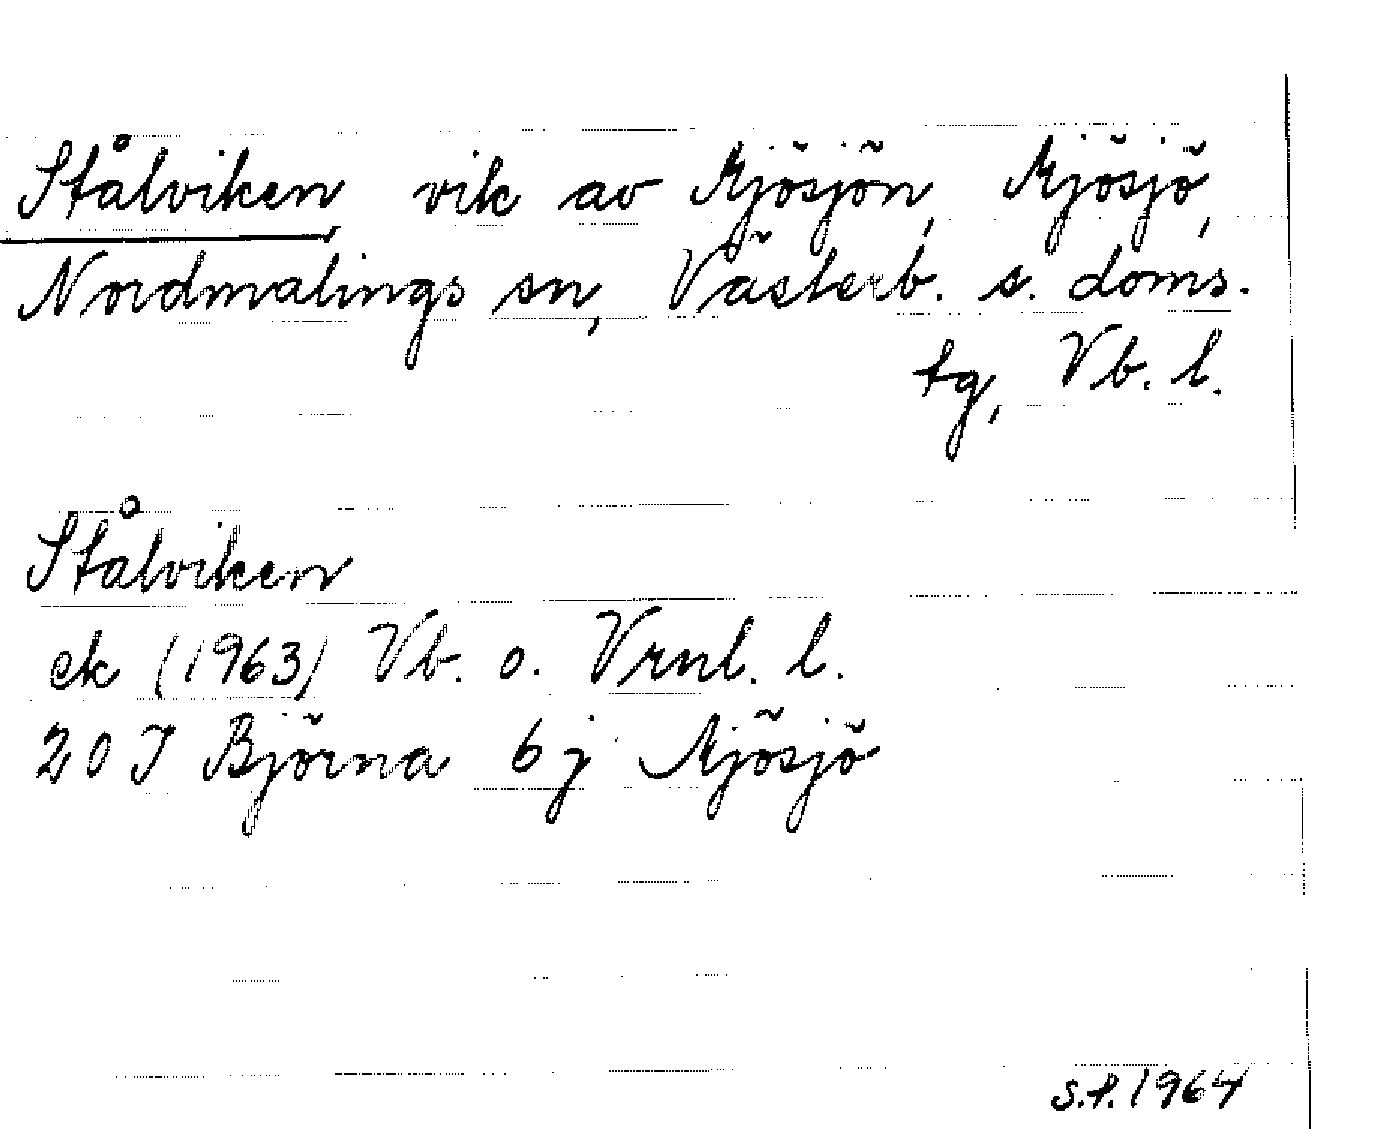 Stålviken, vik av Mjösjön, Mjösjö,
Nordmalings sn, Västerb. s. doms.
tg, Vb. l.
Stålviken
ek (1963) Vb. o. Vrnl. l.
20 J Björna 6 j Mjösjö
S.P. 1964